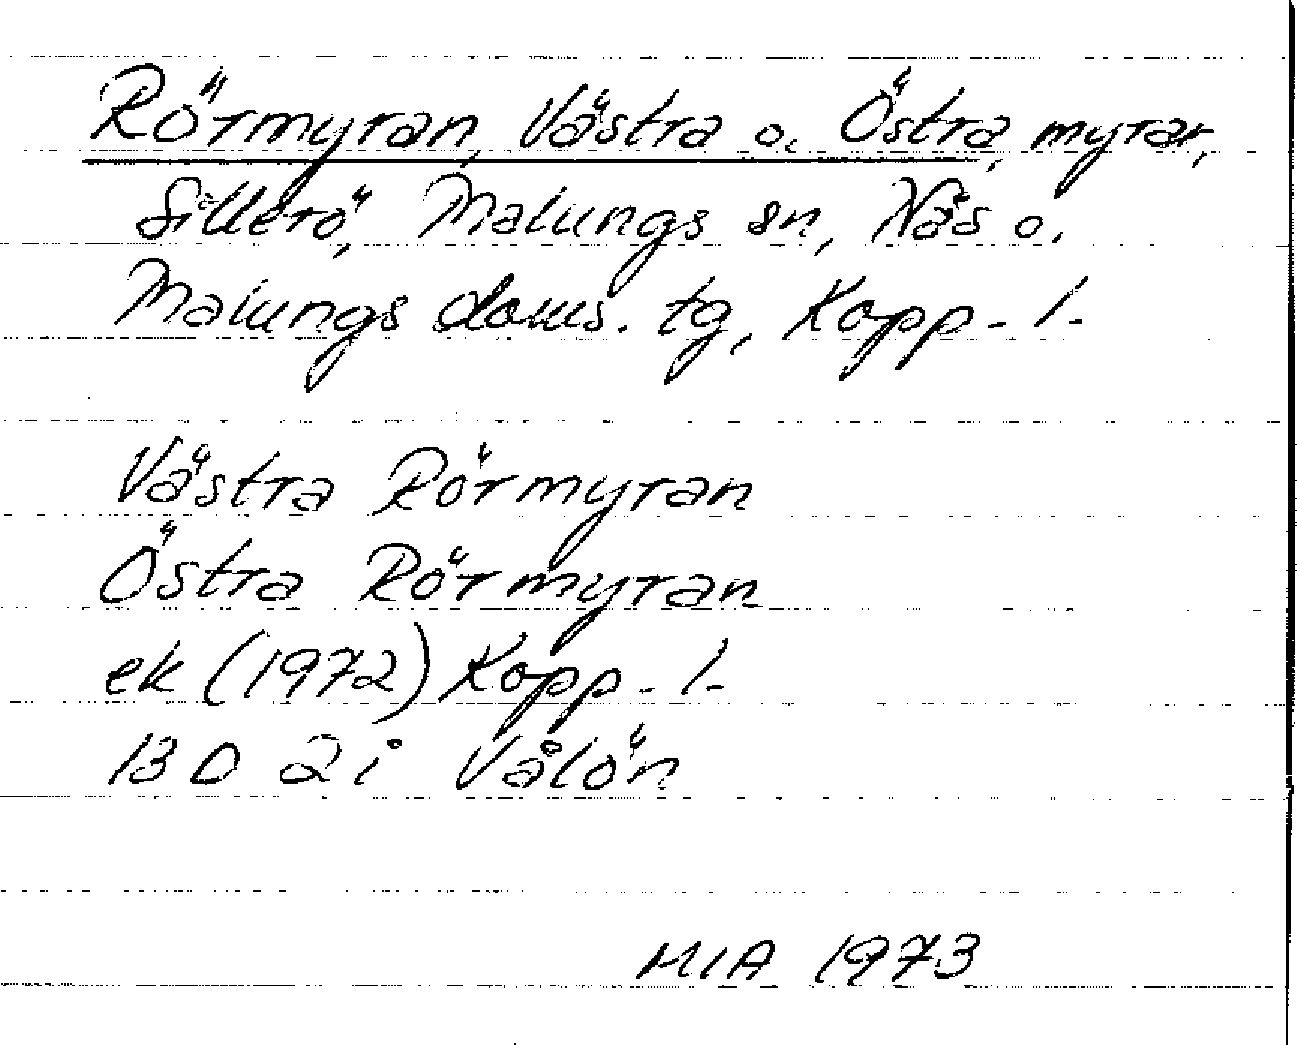 Rörmyran, Västra o. Östra, myrar,
Sillerö, Malungs sn, Nås o.
Malungs doms. tg, Kopp. l.
Västra Rörmyran
Östra Rörmyran
ek (1972) Kopp. l.
13 D 2 i Vålön
MIA 1973